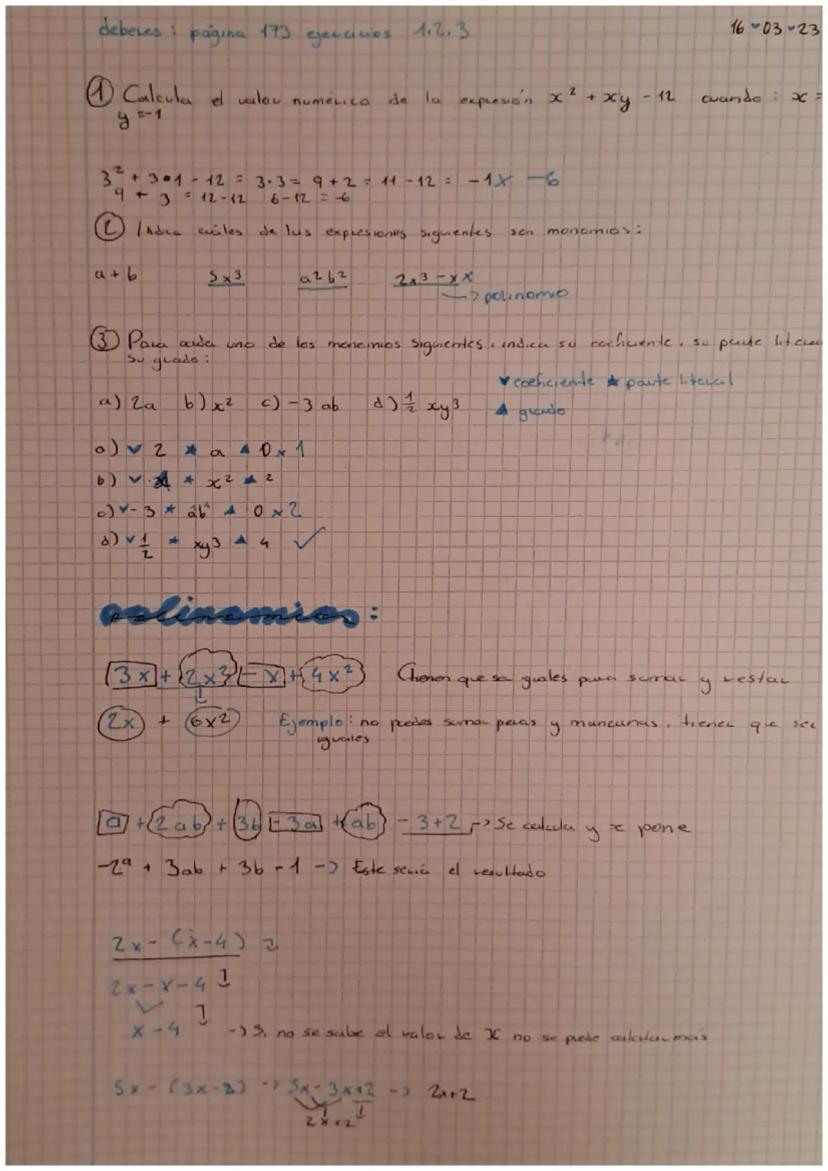 deberes: página 173 ejercicios 1.2.3
16-03-23
① Calcula el valor numérico de la expresión x² + xy - 12 cuando: x =
y =-1
3² + 3•1 - 12 = 3·3 = 9 + 2 = 11 - 12 = -1 x -6
9 + 3 = 12-12 6-12 = -6
② Indica cuáles de las expresiones siguientes son monomios:
a + b 5x³ a²b² 2x³-x x
-> polinomio
③ Para cada uno de los monomios siguientes, indica su coeficiente, su parte literal
su grado:
▼ coeficiente ★ parte literal
a) 2a b) x² c) -3 ab d) 1/2 xy³ ▲ grado
a) ▼ 2 ★ a ▲ 0 x 1
b) ▼ ★ x² ▲ 2
c) ▼ -3 ★ ab ▲ 0 x 2
d) ▼ 1/2 ★ xy³ ▲ 4 ✓
polinomios:
3x + 2x² - x + 4x² tienen que se iguales para sumar y restar
2x + 6x² Ejemplo: no puedes sumar peras y manzanas, tienen que ser
iguales
a + 2ab + 3b - 3a + ab - 3+2 -> Se calcula y se pone
-2a + 3ab + 3b - 1 -> Este sería el resultado
2x - (x-4)
2x - x - 4
x - 4 -> Si no se sabe el valor de x no se puede calcular más
5x - (3x-2) -> 5x - 3x+2 -> 2x+2
2x+2